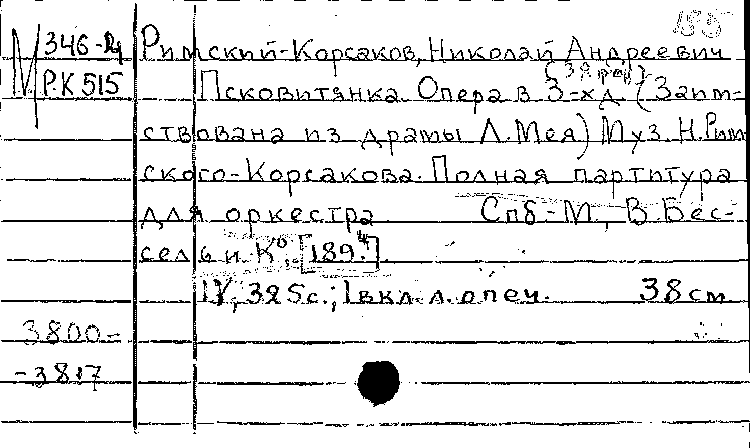 155
М 346-Рц Римский-Корсаков, Николай Андреевич
Р.К 515 Псковитянка. Опера в 3-хд. (Заим-
ствована из драмы Л.Мея) Муз. Н.Рим-
ского-Корсакова. Полная партитура
для оркестра Спб-М., В.Бес-
сель и К°, [189.4].
IV, 325с.; 1 вкл.л.опеч. 38 см
3800-
-3817